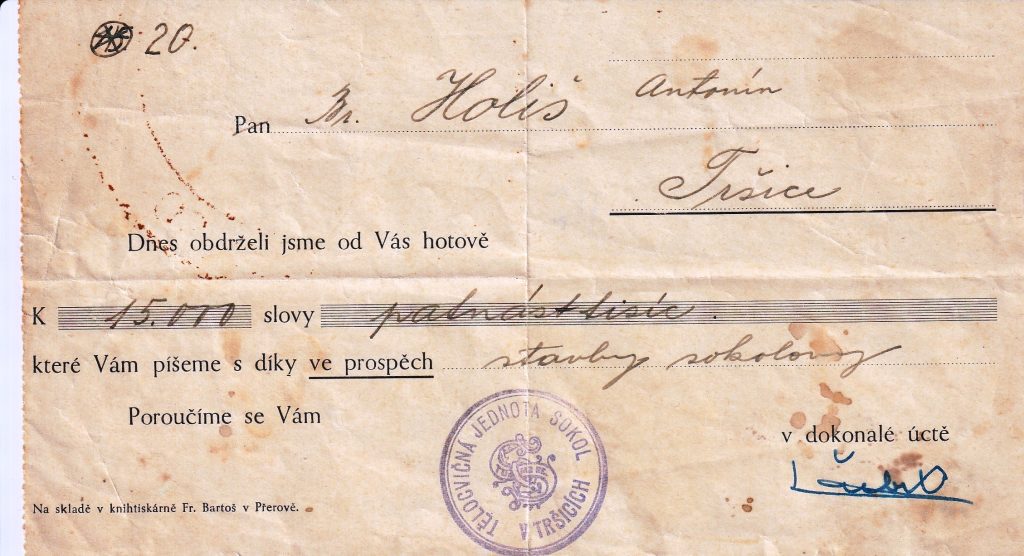 20.
Pan Br. Holiš Antonín
Tršice
Dnes obdrželi jsme od Vás hotově
K 15.000 slovy patnácttisíc.
které Vám píšeme s díky ve prospěch stavby sokolovny
Poroučíme se Vám
v dokonalé úctě
TĚLOCVIČNÁ JEDNOTA SOKOL
V TRŠICÍCH
Na skladě v knihtiskárně Fr. Bartoš v Přerově.